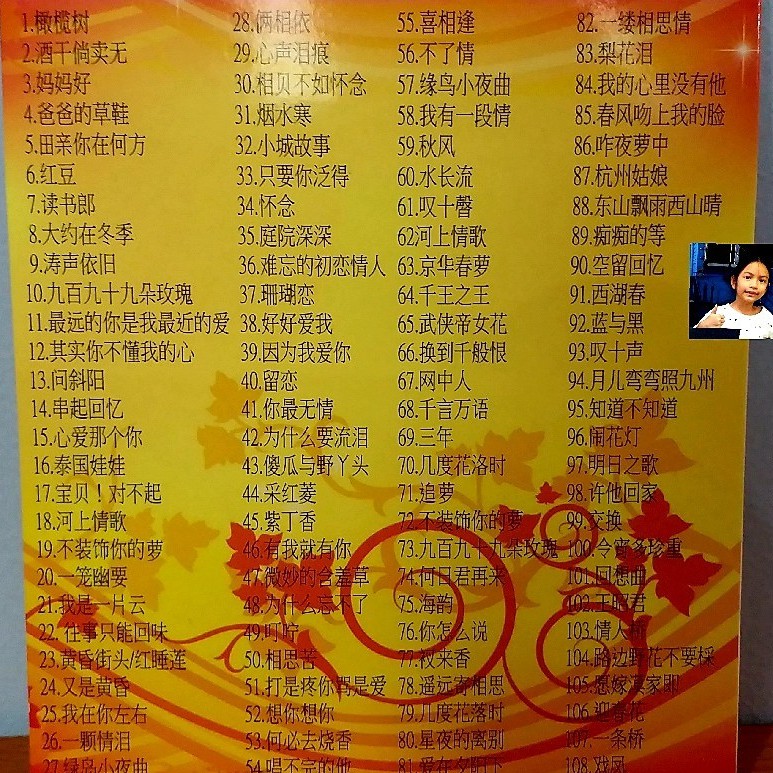 1.橄榄树
2.酒干倘卖无
3.妈妈好
4.爸爸的草鞋
5.田亲你在何方
6.红豆
7.读书郎
8.大约在冬季
9.涛声依旧
10.九百九十九朵玫瑰
11.最远的你是我最近的爱
12.其实你不懂我的心
13.问斜阳
14.串起回忆
15.心爱那个你
16.泰国娃娃
17.宝贝！对不起
18.河上情歌
19.不装饰你的萝
20.一笼幽要
21.我是一片云
22.往事只能回味
23.黄昏街头/红睡莲
24.又是黄昏
25.我在你左右
26.一颗情泪
27.绿岛小夜曲
28.俩相依
29.心声泪痕
30.相贝不如怀念
31.烟水寒
32.小城故事
33.只要你泛得
34.怀念
35.庭院深深
36.难忘的初恋情人
37.珊瑚恋
38.好好爱我
39.因为我爱你
40.留恋
41.你最无情
42.为什么要流泪
43.傻瓜与野丫头
44.采红菱
45.紫丁香
46.有我就有你
47.微妙的含羞草
48.为什么忘不了
49.叮咛
50.相思苦
51.打是疼你骂是爱
52.想你想你
53.何必去烧香
54.唱不完的他
55.喜相逢
56.不了情
57.缘鸟小夜曲
58.我有一段情
59.秋风
60.水长流
61.叹十罄
62河上情歌
63.京华春萝
64.千王之王
65.武侠帝女花
66.换到千般恨
67.网中人
68.千言万语
69.三年
70.几度花洛时
71.追萝
72.不装饰你的萝
73.九百九十九朵玫瑰
74.何日君再来
75.海韵
76.你怎么说
77.衩来香
78.遥远寄相思
79.几度花落时
80.星夜的离别
81.爱在夕阳下
82.一缕相思情
83.梨花泪
84.我的心里没有他
85.春风吻上我的脸
86.咋夜萝中
87.杭州姑娘
88.东山飘雨西山晴
89.痴痴的等
90.空留回忆
91.西湖春
92.蓝与黑
93.叹十声
94.月儿弯弯照九州
95.知道不知道
96.闹花灯
97.明日之歌
98.许他回家
99.交换
100.令宵多珍重
101.回想曲
102.王昭君
103.情人桥
104.路边野花不要採
105.愿嫁漠家郎
106.迎春花
107.一条桥
108.戏凤